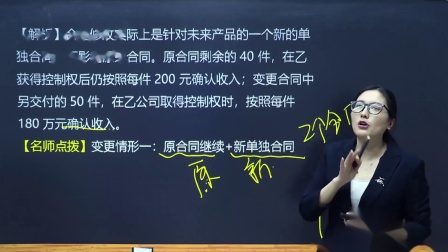 【解析】 际上是针对未来产品的一个新的单
独合同 合同。原合同剩余的 40 件，在乙
获得控制权后仍按照每件 200 元确认收入；变更合同中
另交付的 50 件，在乙公司取得控制权时，按每件
180 万元确认收入。
【名师点拨】变更情形一：原合同继续+新单独合同
2个合同
原 新